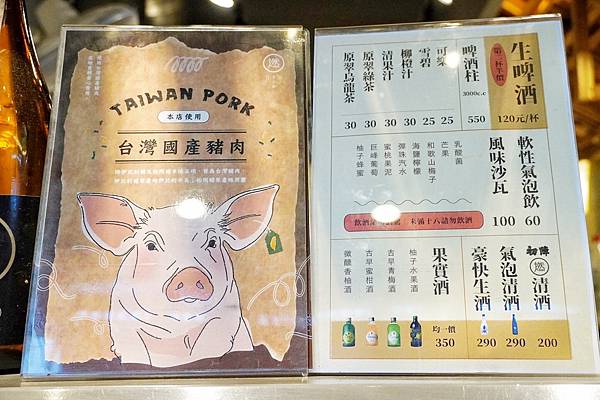 TAIWAN PORK
本店使用
台灣國產豬肉
燃
生啤酒
第二杯半價
120元/杯
啤酒柱
3000c.c
550
可樂 25
雪碧 25
柳橙汁 30
清果汁 30
原翠綠茶 30
原翠烏龍茶 30
軟性氣泡飲 60
風味沙瓦 100
乳酸菌
芒果
和歌山梅子
海鹽檸檬
彈珠汽水
蜜桃果泥
巨峰葡萄
柚子蜂蜜
未滿十八請勿飲酒
初陣
燃
清酒 200
氣泡清酒 290
豪快生酒 290
果實酒
均一價
350
柚子水果酒
古早青梅酒
古早蜜柑酒
微醺香柚酒